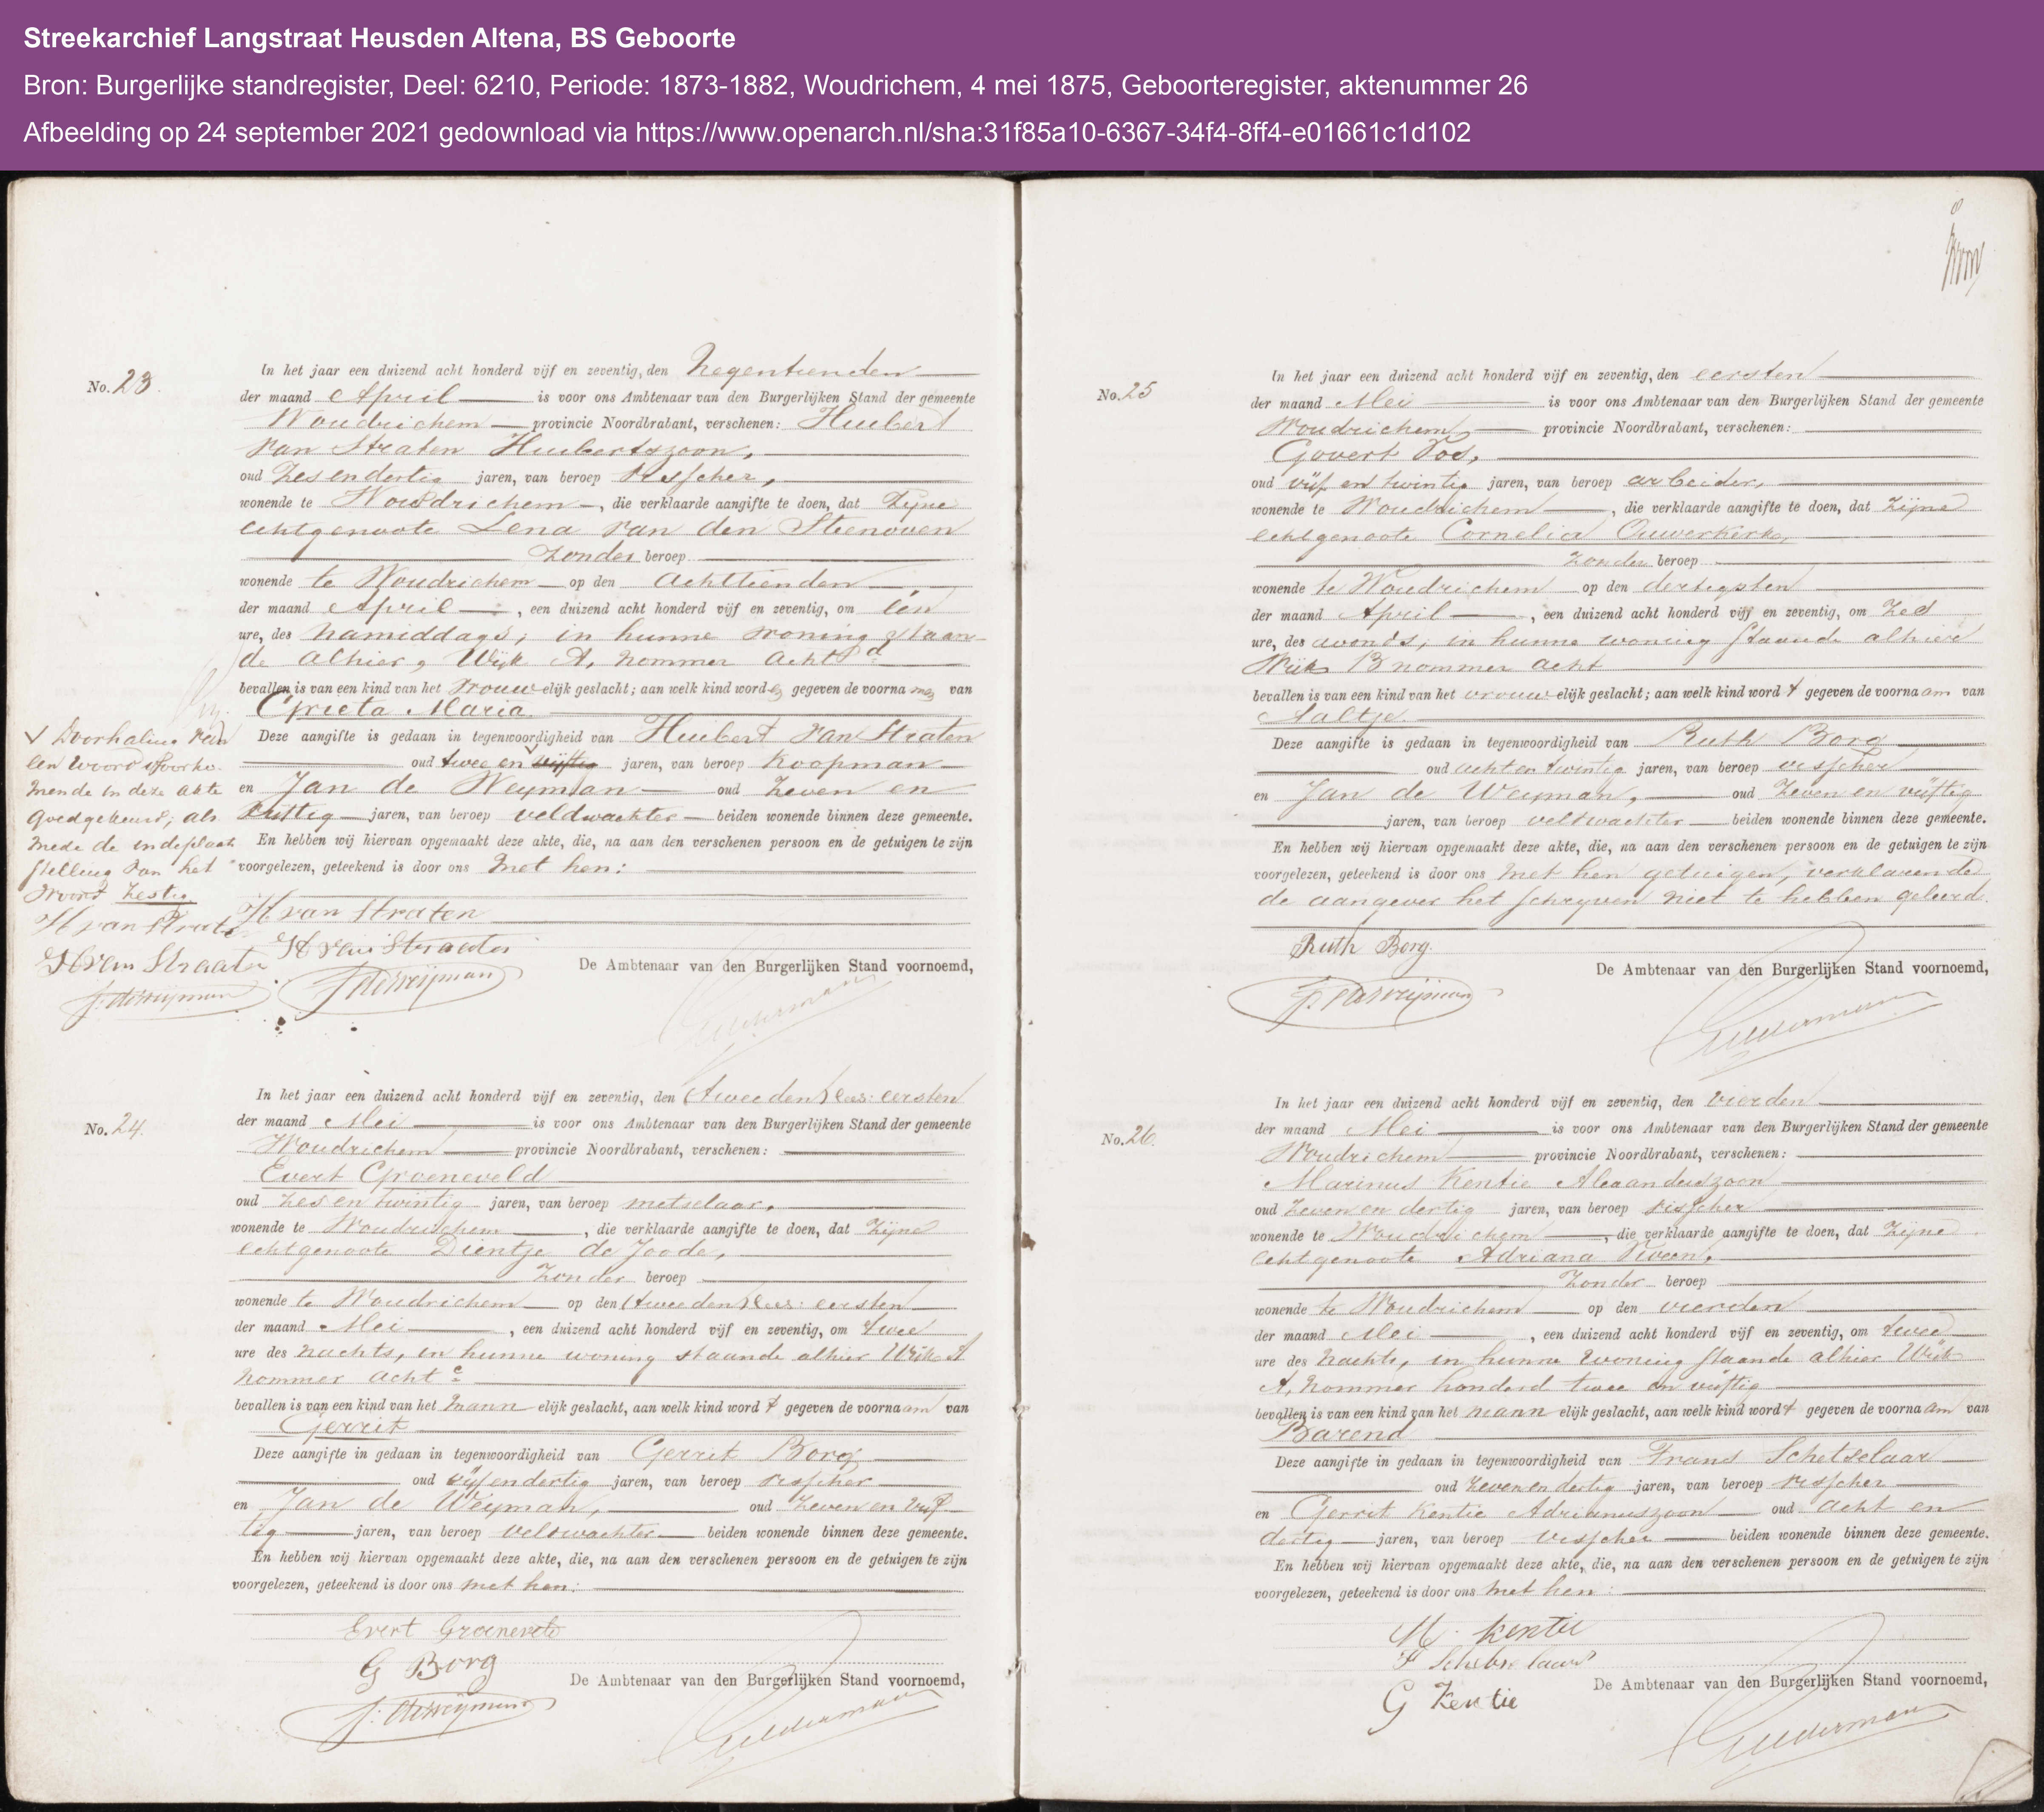 Streekarchief Langstraat Heusden Altena, BS Geboorte
Bron: Burgerlijke standregister, Deel: 6210, Periode: 1873-1882, Woudrichem, 4 mei 1875, Geboorteregister, aktenummer 26
Afbeelding op 24 september 2021 gedownload via https://www.openarch.nl/sha:31f85a10-6367-34f4-8ff4-e01661c1d102
No. 23.
In het jaar een duizend acht honderd vijf en zeventig, den Negentienden
der maand April is voor ons Ambtenaar van den Burgerlijken Stand der gemeente
Woudrichem provincie Noordbrabant, verschenen: Huibert
van Straten Huibertszoon,
oud Zesendertig jaren, van beroep Visscher,
wonende te Woudrichem, die verklaarde aangifte te doen, dat Zijne
echtgenoote Lena van den Steenoven
Zonder beroep
wonende te Woudrichem op den achttienden
der maand April, een duizend acht honderd vijf en zeventig, om één
ure, des namiddags, in hunne woning staan-
de alhier, Wijk A, nommer acht d
bevallen is van een kind van het vrouwelijk geslacht; aan welk kind worden gegeven de voornamen van
Grieta Maria.
Deze aangifte is gedaan in tegenwoordigheid van Huibert van Straten
oud twee en vijftig jaren, van beroep Koopman
en Jan de Weyman oud Zeven en
vijftig jaren, van beroep veldwachter beiden wonende binnen deze gemeente.
En hebben wij hiervan opgemaakt deze akte, die, na aan den verschenen persoon en de getuigen te zijn
voorgelezen, geteekend is door ons met hen:
√ Doorhaling van
een woord voorko-
mende in deze akte
goedgekeurd; als
mede de indeplaats
stelling van het
woord zestig
H van Straten
H van Straaten
J: de Weijman
H van Straten
H van Straaten
J de Weijman
De Ambtenaar van den Burgerlijken Stand voornoemd,
No. 24.
In het jaar een duizend acht honderd vijf en zeventig, den (tweeden) lees: eersten
der maand Mei is voor ons Ambtenaar van den Burgerlijken Stand der gemeente
Woudrichem provincie Noordbrabant, verschenen:
Evert Groeneveld
oud zes en twintig jaren, van beroep metselaar,
wonende te Woudrichem, die verklaarde aangifte te doen, dat Zijne
echtgenoote Dientje de Joode,
Zonder beroep
wonende te Woudrichem op den (tweeden) lees: eersten
der maand Mei, een duizend acht honderd vijf en zeventig, om twee
ure des nachts, in hunne woning staande alhier Wijk A
nommer acht c
bevallen is van een kind van het mannelijk geslacht, aan welk kind wordt gegeven de voornaam van
Gerrit
Deze aangifte in gedaan in tegenwoordigheid van Gerrit Borg
oud vijfendertig jaren, van beroep visscher
en Jan de Weyman, oud Zeven en vijf-
tig jaren, van beroep veldwachter beiden wonende binnen deze gemeente.
En hebben wij hiervan opgemaakt deze akte, die, na aan den verschenen persoon en de getuigen te zijn
voorgelezen, geteekend is door ons met hen:
Evert Groeneveld
G Borg
J: de Weijman
De Ambtenaar van den Burgerlijken Stand voornoemd,
No. 25
In het jaar een duizend acht honderd vijf en zeventig, den eersten
der maand Mei is voor ons Ambtenaar van den Burgerlijken Stand der gemeente
Woudrichem provincie Noordbrabant, verschenen:
Govert Vos,
oud vijf en twintig jaren, van beroep arbeider,
wonende te Woudrichem, die verklaarde aangifte te doen, dat Zijne
echtgenoote Cornelia Ouwerkerk,
Zonder beroep
wonende te Woudrichem op den dertigsten
der maand April, een duizend acht honderd vijf en zeventig, om Zes
ure, des avonds, in hunne woning staande alhier
Wijk B nommer acht
bevallen is van een kind van het vrouwelijk geslacht; aan welk kind wordt gegeven de voornaam van
Aaltje.
Deze aangifte is gedaan in tegenwoordigheid van Ruth Borg
oud acht en twintig jaren, van beroep visscher
en Jan de Weyman, oud Zeven en vijftig
jaren, van beroep veldwachter beiden wonende binnen deze gemeente.
En hebben wij hiervan opgemaakt deze akte, die, na aan den verschenen persoon en de getuigen te zijn
voorgelezen, geteekend is door ons met hen getuigen, verklarende
de aangever het schryven niet te hebben geleerd.
Ruth Borg.
J. de Weijman
De Ambtenaar van den Burgerlijken Stand voornoemd,
No. 26.
In het jaar een duizend acht honderd vijf en zeventig, den vierden
der maand Mei is voor ons Ambtenaar van den Burgerlijken Stand der gemeente
Woudrichem provincie Noordbrabant, verschenen:
Marinus Kentie Alexanderszoon
oud Zeven en dertig jaren, van beroep visscher
wonende te Woudrichem, die verklaarde aangifte te doen, dat Zijne
echtgenoote Adriana Veen,
Zonder beroep
wonende te Woudrichem op den vierden
der maand Mei, een duizend acht honderd vijf en zeventig, om twee
ure des nachts, in hunne woning staande alhier Wijk
A, nommer honderd twee en vijftig
bevallen is van een kind van het mannelijk geslacht, aan welk kind wordt gegeven de voornaam van
Barend
Deze aangifte in gedaan in tegenwoordigheid van Frans Schetselaar
oud Zeven en dertig jaren, van beroep visscher
en Gerrit Kentie Adrianuszoon oud acht en
dertig jaren, van beroep visscher beiden wonende binnen deze gemeente.
En hebben wij hiervan opgemaakt deze akte, die, na aan den verschenen persoon en de getuigen te zijn
voorgelezen, geteekend is door ons met hen:
M. Kentie
F Schetselaar
G Kentie
De Ambtenaar van den Burgerlijken Stand voornoemd,